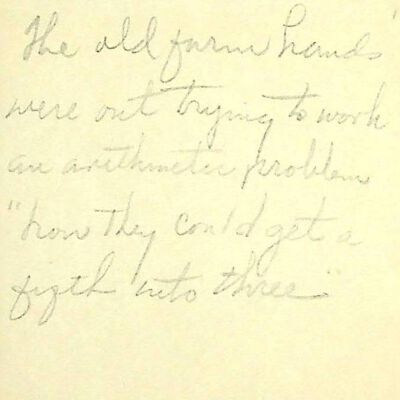 The old farm hands'
were out trying to work
an arithmetic problem
"how they could get a
fifth into three"